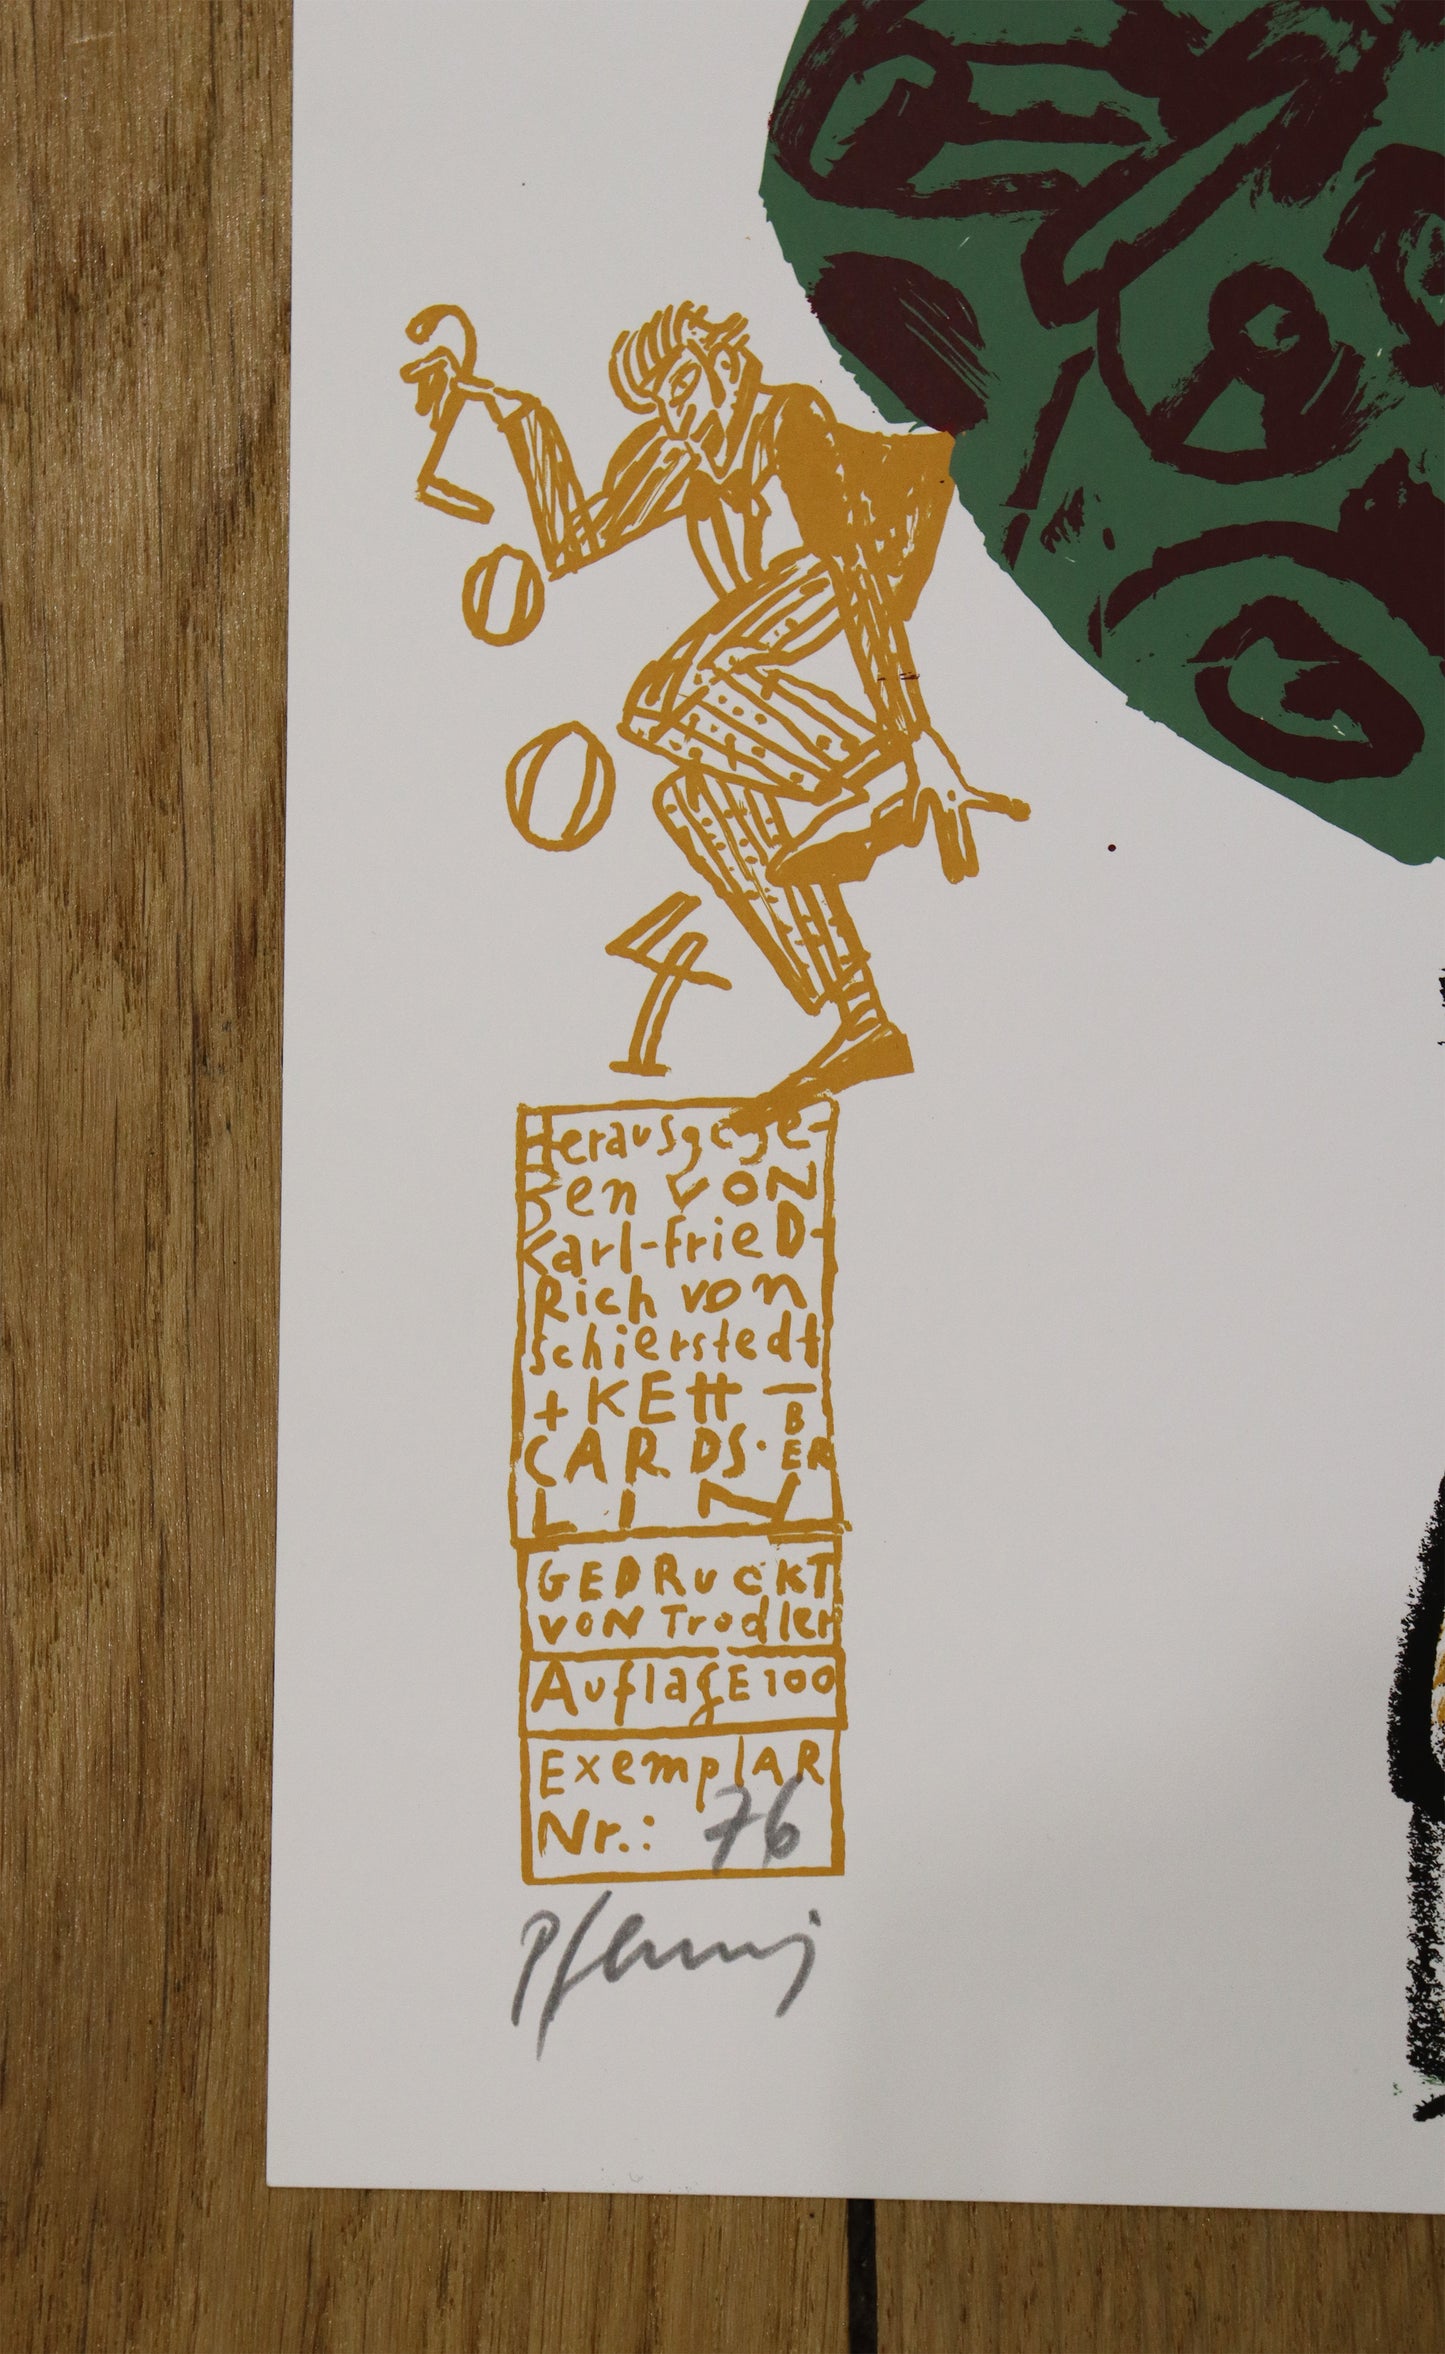 4
Herausgege-
Ben von
Karl-FrieD-
Rich von
schierstedt
+ KETT –
CARDS · BER
LIN
GEDRuckT
voN Trodler
AuflagE 100
ExemplAR
Nr.: 76
Pfennig